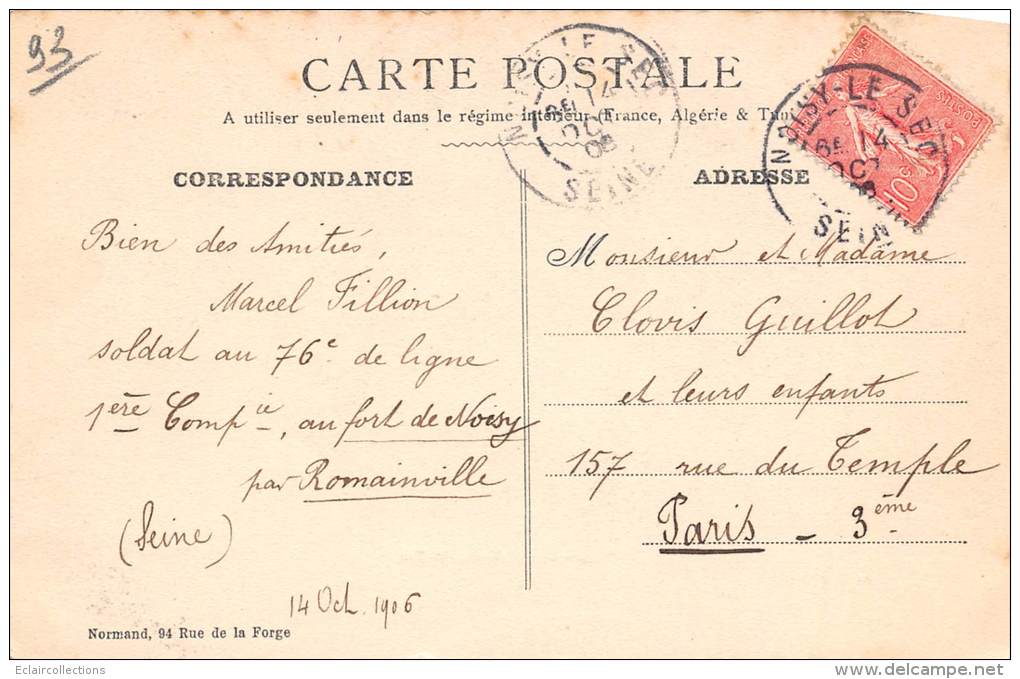 93
CARTE POSTALE
A utiliser seulement dans le régime intérieur (France, Algérie &
NOISY-LE-SEC
14
OC
06
SEINE
NOISY-LE-SEC
14
OC
SEINE
10
POSTES
CORRESPONDANCE
Bien des Amitiés,
Marcel Fillion
soldat au 76e de ligne
1ère Compie, au fort de Noisy
par Romainville
(Seine)
14 Oct. 1906
Normand, 94 Rue de la Forge
ADRESSE
Monsieur et Madame
Clovis Guillot
et leurs enfants
157 rue du Temple
Paris - 3ème
Eclaircollections
www.delcampe.net